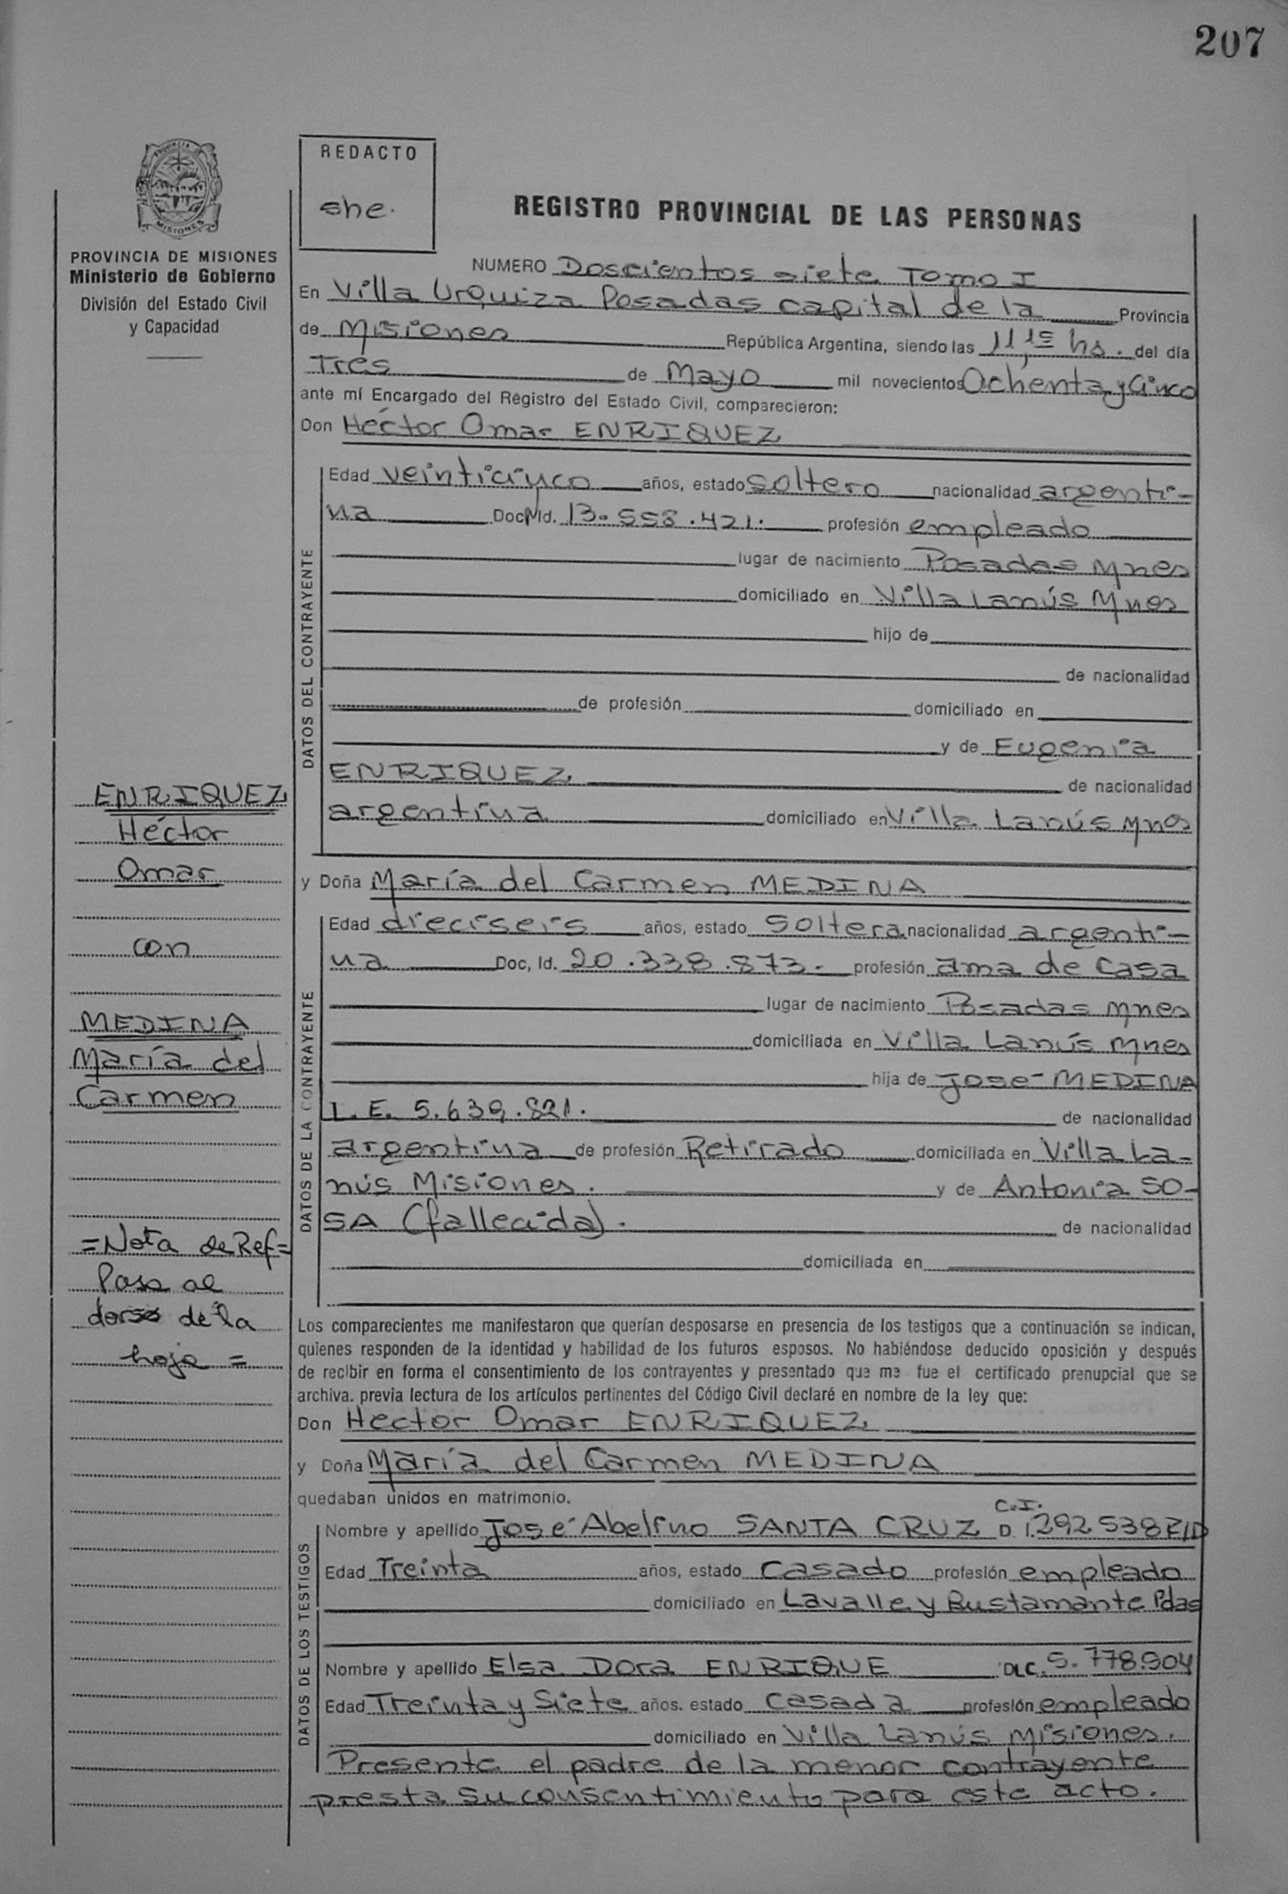 207
REDACTO
she.
PROVINCIA DE MISIONES
Ministerio de Gobierno
División del Estado Civil
y Capacidad
REGISTRO PROVINCIAL DE LAS PERSONAS
NUMERO Doscientos siete Tomo I
En Villa Urquiza Posadas capital de la Provincia
de Misiones República Argentina, siendo las 11,15 hs. del día
Tres de Mayo mil novecientos Ochenta y Cinco
ante mí Encargado del Registro del Estado Civil, comparecieron:
Don Héctor Omar ENRIQUEZ
DATOS DEL CONTRAYENTE
Edad veinticinco años, estado soltero nacionalidad argenti-
na Doc. Id. 13.558.421. profesión empleado
lugar de nacimiento Posadas Mnes
domiciliado en Villa Lanús Mnes
hijo de
de nacionalidad
de profesión domiciliado en
y de Eugenia
ENRIQUEZ de nacionalidad
argentina domiciliado en Villa Lanús Mnes
y Doña María del Carmen MEDINA
DATOS DE LA CONTRAYENTE
Edad dieciseis años, estado Soltera nacionalidad argenti-
na Doc, Id. 20.338.873.- profesión ama de casa
lugar de nacimiento Posadas Mnes
domiciliada en Villa Lanús Mnes
hija de José MEDINA
L.E. 5.639.821. de nacionalidad
argentina de profesión Retirado domiciliada en Villa La-
nús Misiones. y de Antonia SO-
SA (fallecida). de nacionalidad
domiciliada en
Los comparecientes me manifestaron que querían desposarse en presencia de los testigos que a continuación se indican,
quienes responden de la identidad y habilidad de los futuros esposos. No habiéndose deducido oposición y después
de recibir en forma el consentimiento de los contrayentes y presentado que me fue el certificado prenupcial que se
archiva. previa lectura de los artículos pertinentes del Código Civil declaré en nombre de la ley que:
Don Hector Omar ENRIQUEZ
y Doña María del Carmen MEDINA
quedaban unidos en matrimonio.
DATOS DE LOS TESTIGOS
C.I.
Nombre y apellido José Abelino SANTA CRUZ D. I. 292538
Edad Treinta años, estado Casado profesión empleado
domiciliado en Lavalle y Bustamante Pdas
Nombre y apellido Elsa Dora ENRIQUE D.I.C. 5.778.904
Edad Treinta y Siete años. estado casada profesión empleado
domiciliado en Villa Lanús Misiones.
Presente el padre de la menor contrayente
presta su consentimiento para este acto.
ENRIQUEZ
Héctor
Omar
con
MEDINA
María del
Carmen
=Nota de Ref=
Pasa al
dorso de la
hoja =